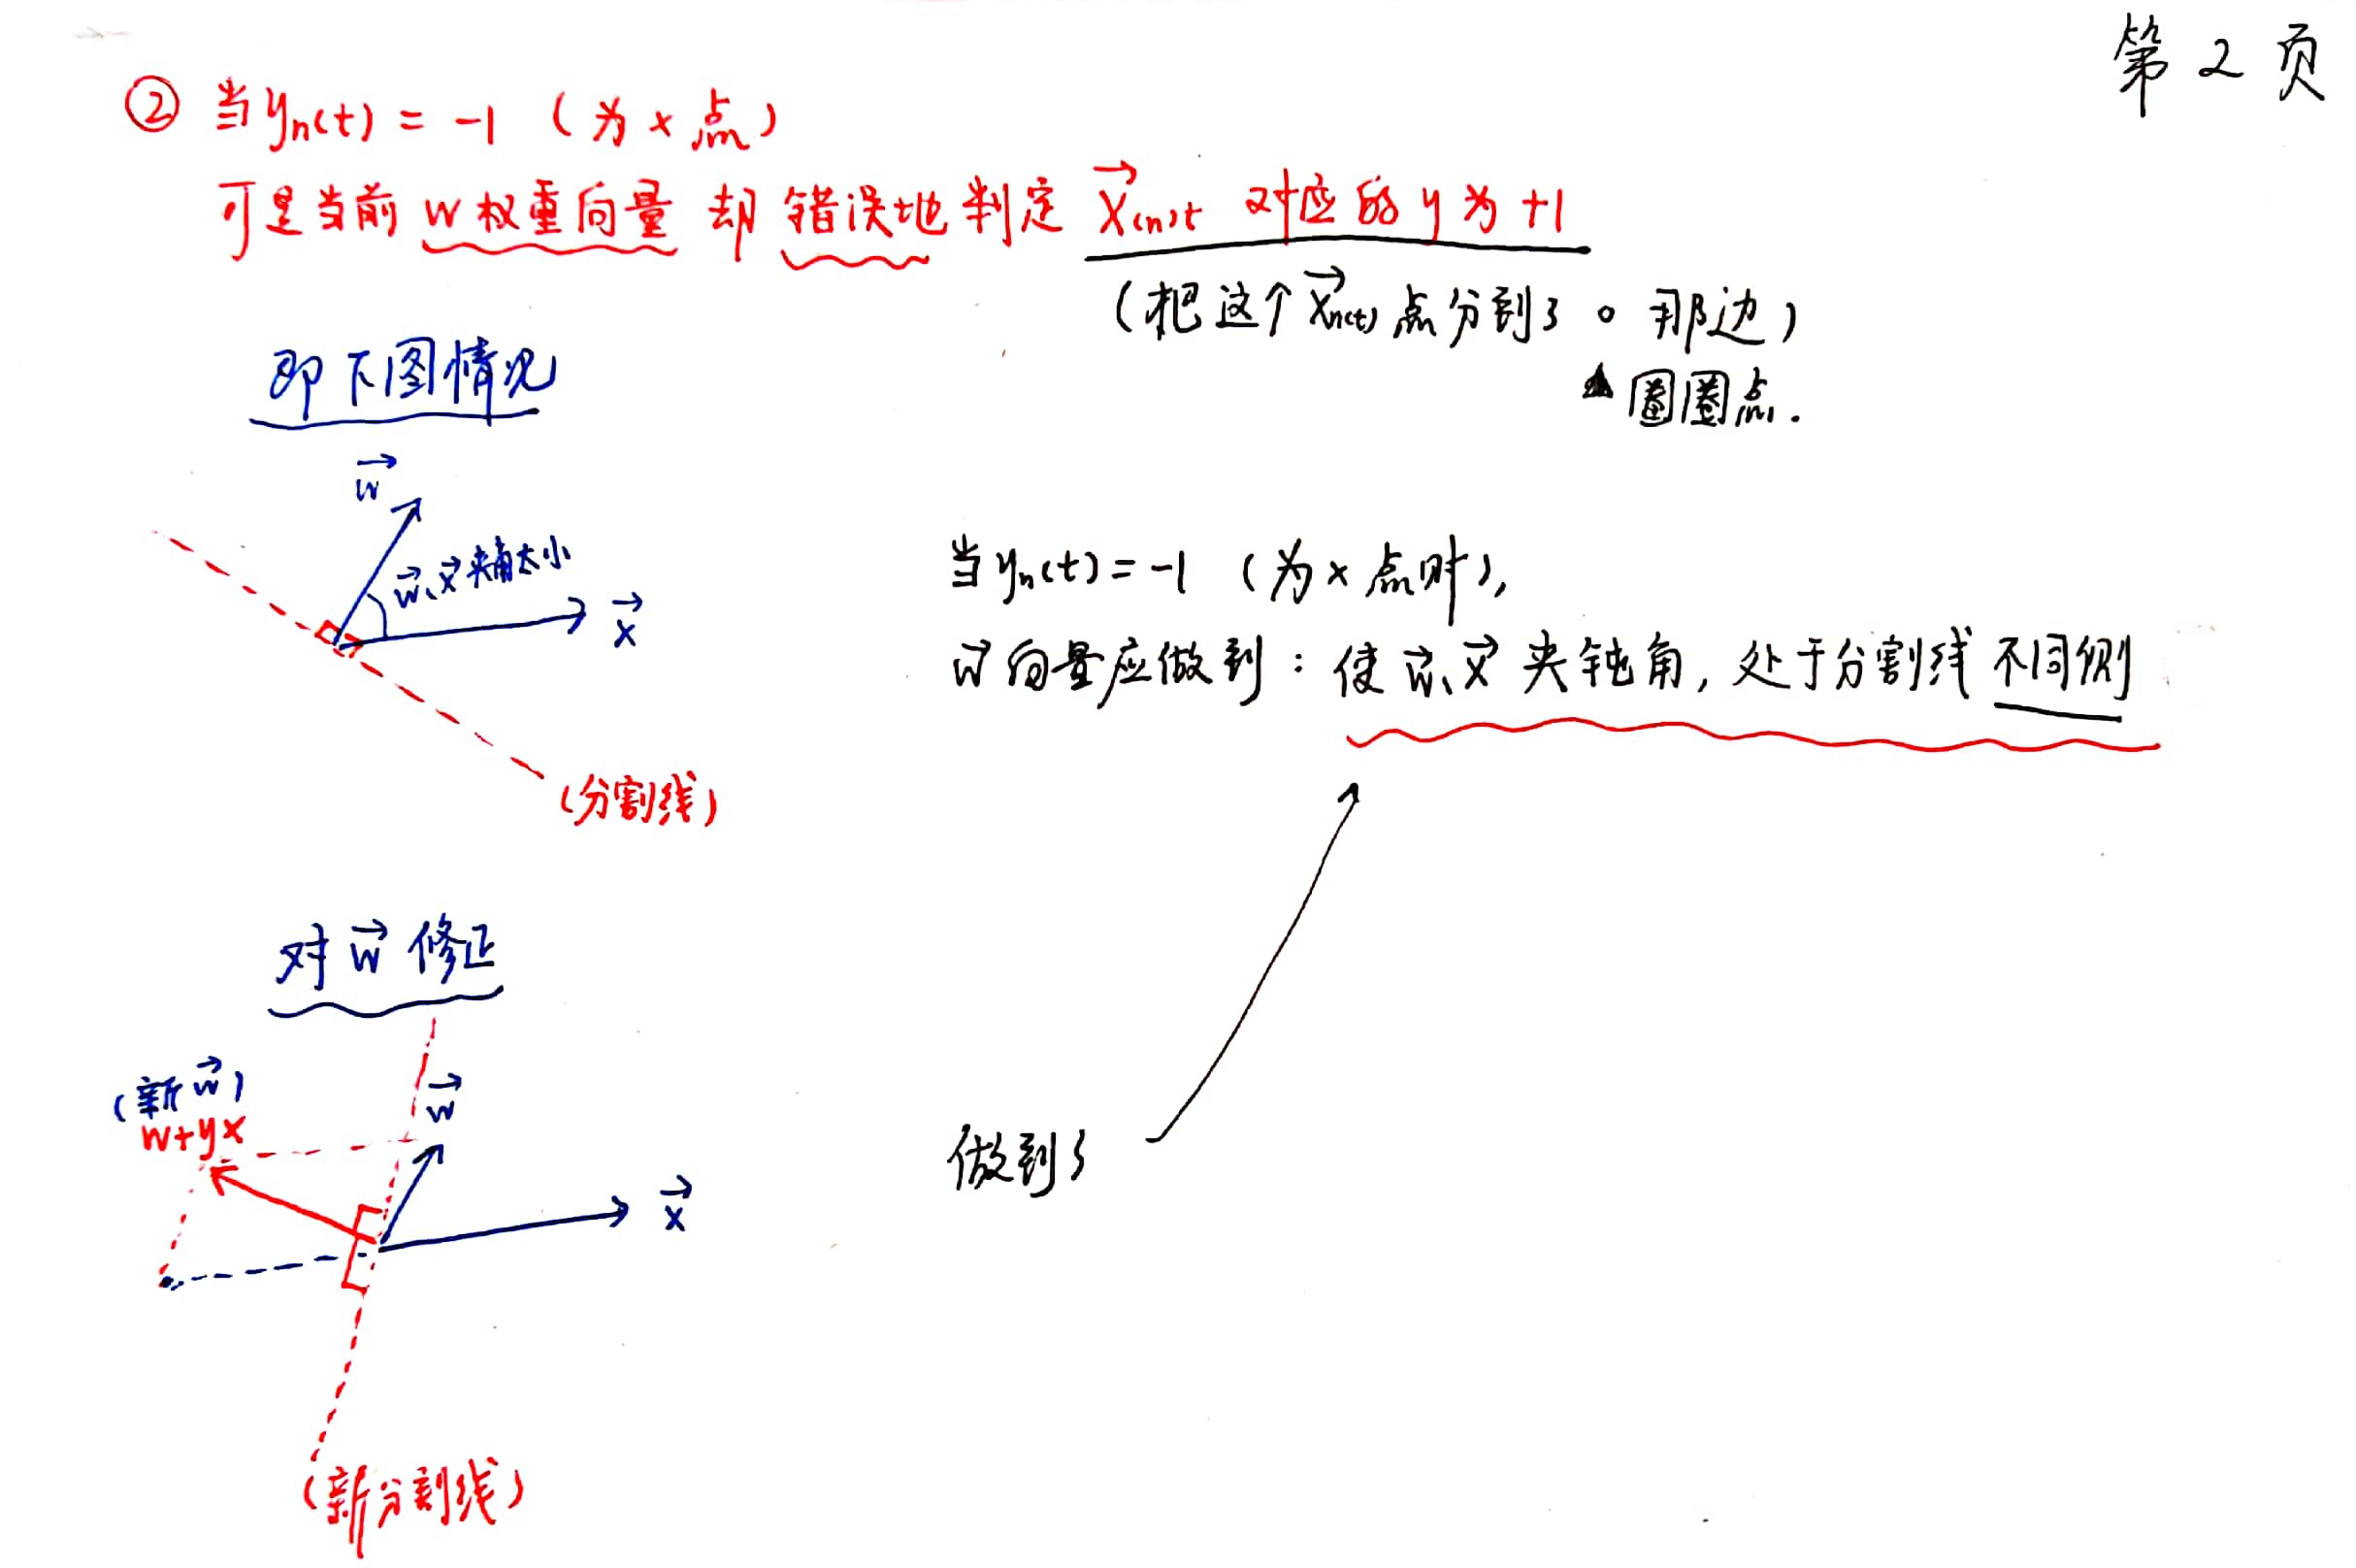 第2页
② 当yn(t) = -1 (为x点)
可是当前 W权重向量 却 错误地判定 X(n)t 对应的y为+1
(把这个Xn(t)点分到了 o 那边)
圈圈点.
即下图情况
w
w、x夹角太小
x
(分割线)
当yn(t) = -1 (为x点时),
w向量应做到: 使w、x夹钝角, 处于分割线不同侧
对w修正
(新w)
w+yx
w
x
做到了
(新分割线)